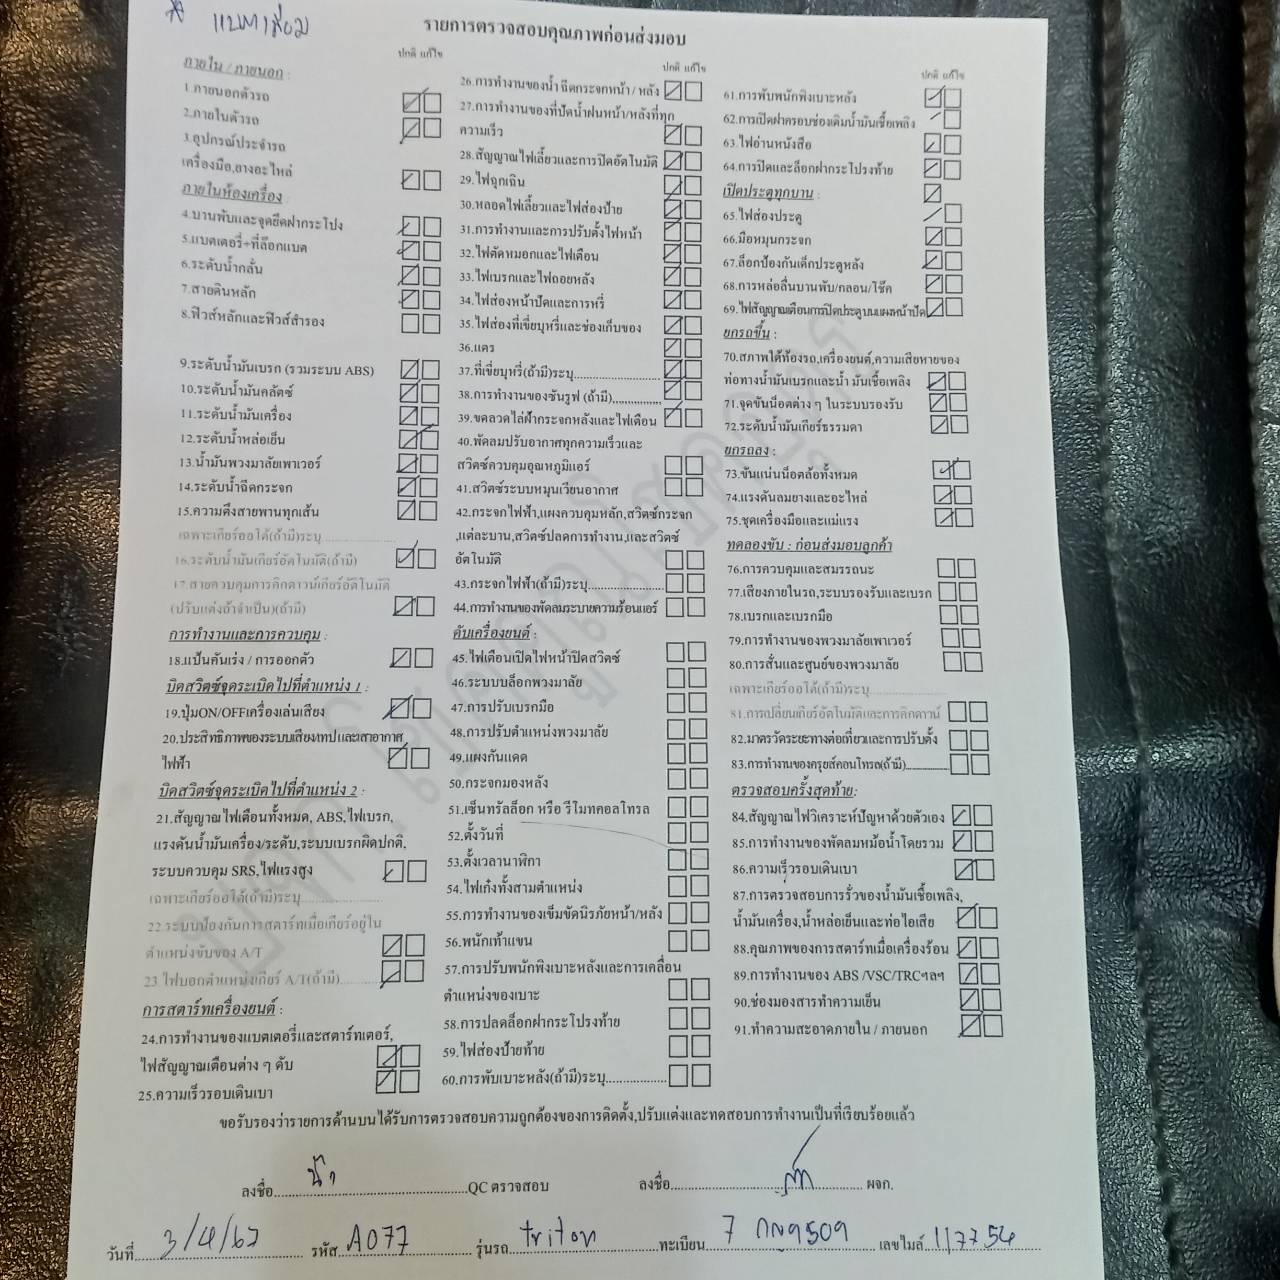 แบตเสื่อม
รายการตรวจสอบคุณภาพก่อนส่งมอบ
ปกติ แก้ไข
ภายใน / ภายนอก :
1.ภายนอกตัวรถ
2.ภายในตัวรถ
3.อุปกรณ์ประจำรถ
เครื่องมือ,ยางอะไหล่
ภายในห้องเครื่อง
4.บานพับและจุดยึดฝากระโปง
5.แบตเตอรี่+ที่ล็อกแบต
6.ระดับน้ำกลั่น
7.สายดินหลัก
8.ฟิวส์หลักและฟิวส์สำรอง
9.ระดับน้ำมันเบรก (รวมระบบ ABS)
10.ระดับน้ำมันคลัตซ์
11.ระดับน้ำมันเครื่อง
12.ระดับน้ำหล่อเย็น
13.น้ำมันพวงมาลัยเพาเวอร์
14.ระดับน้ำฉีดกระจก
15.ความตึงสายพานทุกเส้น
เฉพาะเกียร์ออโต้(ถ้ามี)ระบุ
16.ระดับน้ำมันเกียร์อัตโนมัติ(ถ้ามี)
17.สายควบคุมการคิกดาวน์เกียร์อัตโนมัติ
(ปรับแต่งถ้าจำเป็น)(ถ้ามี)
การทำงานและการควบคุม :
18.แป้นคันเร่ง / การออกตัว
บิดสวิตซ์จุดระเบิดไปที่ตำแหน่ง 1 :
19.ปุ่มON/OFFเครื่องเล่นเสียง
20.ประสิทธิภาพของระบบเสียงเทปและเสาอากาศ
ไฟฟ้า
บิดสวิตซ์จุดระเบิดไปที่ตำแหน่ง 2 :
21.สัญญาณไฟเตือนทั้งหมด, ABS,ไฟเบรก,
แรงดันน้ำมันเครื่อง/ระดับ,ระบบเบรกผิดปกติ,
ระบบควบคุม SRS,ไฟแรงสูง
เฉพาะเกียร์ออโต้(ถ้ามี)ระบุ
22.ระบบป้องกันการสตาร์ทเมื่อเกียร์อยู่ใน
ตำแหน่งขับของ A/T
23.ไฟบอกตำแหน่งเกียร์ A/T(ถ้ามี)
การสตาร์ทเครื่องยนต์ :
24.การทำงานของแบตเตอรี่และสตาร์ทเตอร์,
ไฟสัญญาณเตือนต่าง ๆ ดับ
25.ความเร็วรอบเดินเบา
ปกติ แก้ไข
26.การทำงานของน้ำ ฉีดกระจกหน้า / หลัง
27.การทำงานของที่ปัดน้ำฝนหน้า/หลังที่ทุก
ความเร็ว
28.สัญญาณไฟเลี้ยวและการปิดอัตโนมัติ
29.ไฟฉุกเฉิน
30.หลอดไฟเลี้ยวและไฟส่องป้าย
31.การทำงานและการปรับตั้งไฟหน้า
32.ไฟตัดหมอกและไฟเตือน
33.ไฟเบรกและไฟถอยหลัง
34.ไฟส่องหน้าปัดและการหรี่
35.ไฟส่องที่เขี่ยบุหรี่และช่องเก็บของ
36.แตร
37.ที่เขี่ยบุหรี่(ถ้ามี)ระบุ
38.การทำงานของซันรูฟ (ถ้ามี)
39.ขดลวดไล่ฝ้ากระจกหลังและไฟเตือน
40.พัดลมปรับอากาศทุกความเร็วและ
สวิตซ์ควบคุมอุณหภูมิแอร์
41.สวิตซ์ระบบหมุนเวียนอากาศ
42.กระจกไฟฟ้า,แผงควบคุมหลัก,สวิตซ์กระจก
,แต่ละบาน,สวิตซ์ปลดการทำงาน,และสวิตซ์
อัตโนมัติ
43.กระจกไฟฟ้า(ถ้ามี)ระบุ
44.การทำงานของพัดลมระบายความร้อนแอร์
ดับเครื่องยนต์ :
45.ไฟเตือนเปิดไฟหน้าปิดสวิตซ์
46.ระบบบล็อกพวงมาลัย
47.การปรับเบรกมือ
48.การปรับตำแหน่งพวงมาลัย
49.แผงกันแดด
50.กระจกมองหลัง
51.เซ็นทรัลล็อก หรือ รีโมทคอลโทรล
52.ตั้งวันที่
53.ตั้งเวลานาฬิกา
54.ไฟเก๋งทั้งสามตำแหน่ง
55.การทำงานของเข็มขัดนิรภัยหน้า/หลัง
56.พนักเท้าแขน
57.การปรับพนักพิงเบาะหลังและการเคลื่อน
ตำแหน่งของเบาะ
58.การปลดล็อกฝากระโปงท้าย
59.ไฟส่องป้ายท้าย
60.การพับเบาะหลัง(ถ้ามี)ระบุ
ปกติ แก้ไข
61.การพับพนักพิงเบาะหลัง
62.การเปิดฝาครอบช่องเติมน้ำมันเชื้อเพลิง
63.ไฟอ่านหนังสือ
64.การปิดและล็อกฝากระโปงท้าย
เปิดประตูทุกบาน :
65.ไฟส่องประตู
66.มือหมุนกระจก
67.ล็อกป้องกันเด็กประตูหลัง
68.การหล่อลื่นบานพับ/กลอน/โช๊ค
69.ไฟสัญญาณเตือนการปิดประตูบนแผงหน้าปัด
ยกรถขึ้น :
70.สภาพใต้ท้องรถ,เครื่องยนต์,ความเสียหายของ
ท่อทางน้ำมันเบรกและน้ำ มันเชื้อเพลิง
71.จุดขันน็อตต่าง ๆ ในระบบรองรับ
72.ระดับน้ำมันเกียร์ธรรมดา
ยกรถลง :
73.ขันแน่นน็อตล้อทั้งหมด
74.แรงดันลมยางและอะไหล่
75.ชุดเครื่องมือและแม่แรง
ทดลองขับ : ก่อนส่งมอบลูกค้า
76.การควบคุมและสมรรถนะ
77.เสียงภายในรถ,ระบบรองรับและเบรก
78.เบรกและเบรกมือ
79.การทำงานของพวงมาลัยเพาเวอร์
80.การสั่นและศูนย์ของพวงมาลัย
เฉพาะเกียร์ออโต้(ถ้ามี)ระบุ
81.การเปลี่ยนเกียร์อัตโนมัติและการคิกดาวน์
82.มาตรวัดระยะทางต่อเที่ยวและการปรับตั้ง
83.การทำงานของครุยส์คอนโทรล(ถ้ามี)
ตรวจสอบครั้งสุดท้าย:
84.สัญญาณไฟวิเคราะห์ปัญหาด้วยตัวเอง
85.การทำงานของพัดลมหม้อน้ำโดยรวม
86.ความเร็วรอบเดินเบา
87.การตรวจสอบการรั่วของน้ำมันเชื้อเพลิง,
น้ำมันเครื่อง,น้ำหล่อเย็นและท่อไอเสีย
88.คุณภาพของการสตาร์ทเมื่อเครื่องร้อน
89.การทำงานของ ABS /VSC/TRCฯลฯ
90.ช่องมองสารทำความเย็น
91.ทำความสะอาดภายใน / ภายนอก
ขอรับรองว่ารายการด้านบนได้รับการตรวจสอบความถูกต้องของการติดตั้ง,ปรับแต่งและทดสอบการทำงานเป็นที่เรียบร้อยแล้ว
ลงชื่อ QC ตรวจสอบ ลงชื่อ ผจก.
วันที่ 3/4/67 รหัส A077 รุ่นรถ triton ทะเบียน 7 กญ9509 เลขไมล์ 117754